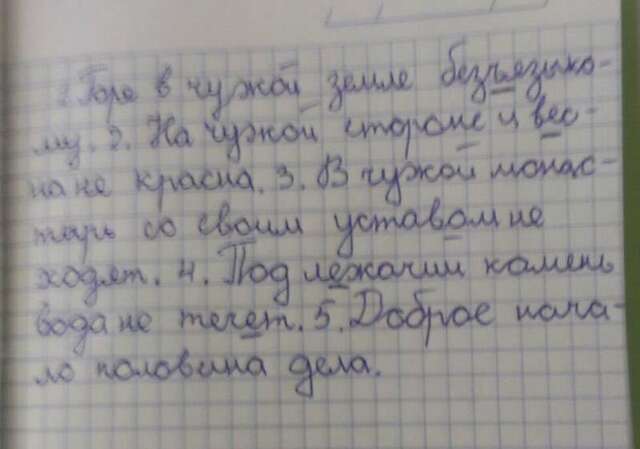 1. Горе в чужой земле безъязыко-
му. 2. На чужой стороне и вес-
на не красна. 3. В чужой монас-
тырь со своим уставом не
ходят. 4. Под лежачий камень
вода не течет. 5. Доброе нача-
ло половина дела.